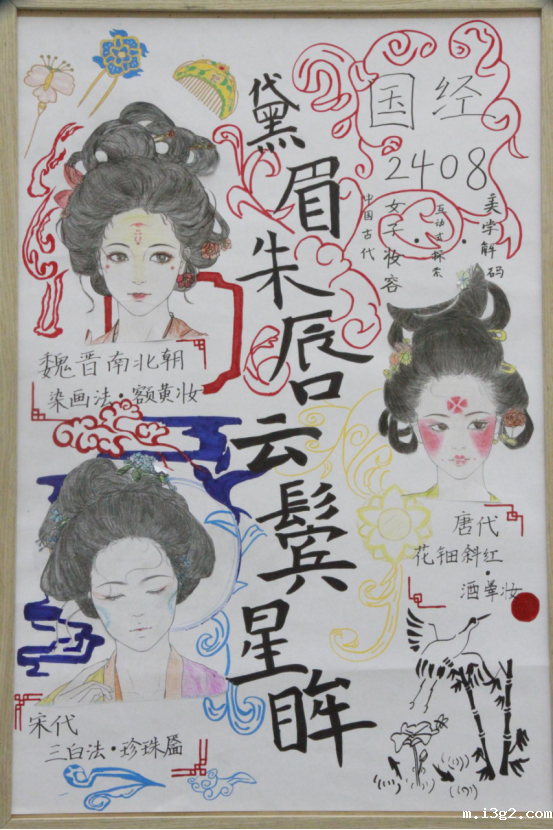 国经
2408
黛眉朱唇云鬓星眸
中国古代
女子·妆容
互动式探索
·
美学解码
魏晋南北朝
染画法·额黄妆
唐代
花钿斜红
·
酒晕妆
宋代
三白法·珍珠
m.i3g2.com